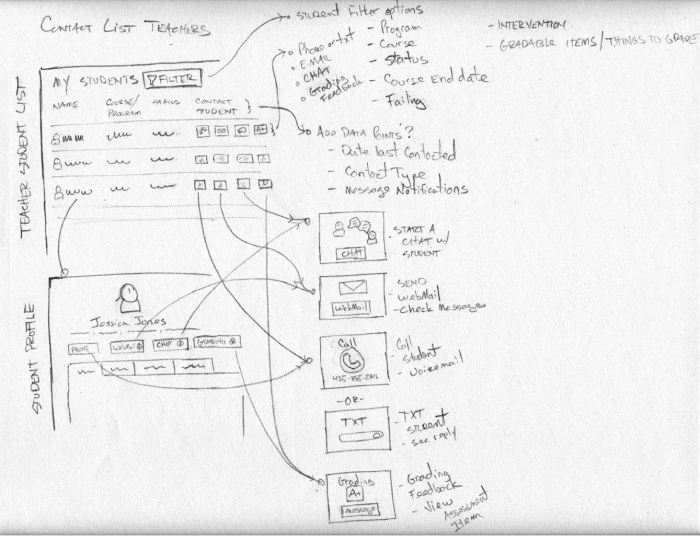 CONTACT LIST TEACHERS
STUDENT Filter options
- Program
- Course
- Status
- Course End date
- Failing
- INTERVENTION
- GRADABLE ITEMS/THINGS TO GRADE
Phone or txt
EMAIL
CHAT
Grading
Feedback
TEACHER STUDENT LIST
MY STUDENTS
FILTER
NAME
COURSE/
PROGRAM
STATUS
CONTACT
STUDENT
A+
ADD DATA POINTS?
- Date last Contacted
- Contact Type
- Message Notifications
CHAT
- START A
CHAT w/
STUDENT
WebMail
- SEND
- WebMail
- Check Messages
STUDENT PROFILE
Jessica Jones
PHONE
CHAT
GRADING
Call
- Call
Student
- Voicemail
-OR-
TXT
- TXT
Student
- see reply
Grading
A+
Message
- Grading
Feedback
- View
Assessment
Item